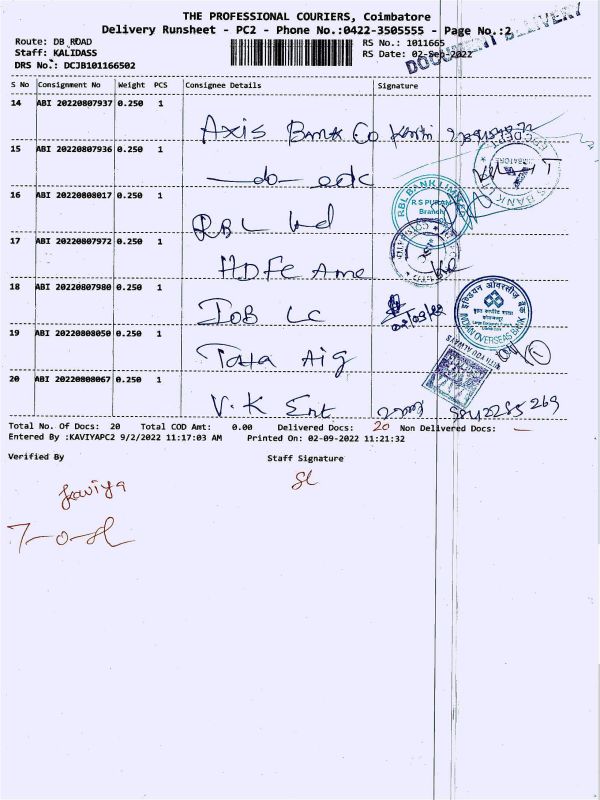 THE PROFESSIONAL COURIERS, Coimbatore
Delivery Runsheet - PC2 - Phone No.:0422-3505555 - Page No.:2
DOCUMENT DELIVERY
Route: DB_ROAD RS No.: 1011665
Staff: KALIDASS RS Date: 02-Sep-2022
DRS No.: DCJB101166502
S No Consignment No Weight PCS Consignee Details Signature
14 ABI 20220807937 0.250 1
Axis Bank Co
15 ABI 20220807936 0.250 1
—do— edc
16 ABI 20220808017 0.250 1
RBL BANK LIMITED
R.S PURAM
Branch
RBL
17 ABI 20220807972 0.250 1
HDFC
18 ABI 20220807980 0.250 1
IOB LC
इण्डियन ओवरसीज़ बैंक
INDIAN OVERSEAS BANK
19 ABI 20220808050 0.250 1
Tata Aig
WITH YOU ALWAYS
20 ABI 20220808067 0.250 1
V.K Ent
Total No. Of Docs: 20 Total COD Amt: 0.00 Delivered Docs: 20 Non Delivered Docs: —
Entered By :KAVIYAPC2 9/2/2022 11:17:03 AM Printed On: 02-09-2022 11:21:32
Verified By Staff Signature
Kaviya